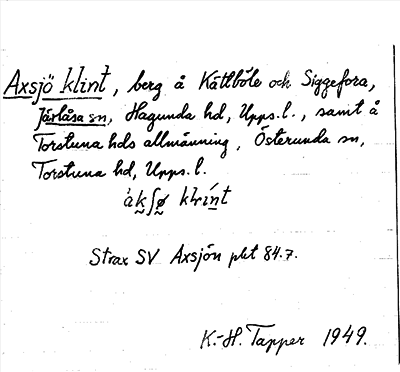 Axsjö klint, berg å Kättböle och Siggefora,
Järlåsa sn, Hagunda hd, Upps.l., samt å
Torstuna hds allmänning, Österunda sn,
Torstuna hd, Upps.l.
Strax SV Axsjön pkt 84.7.
K.-H. Tapper 1949.